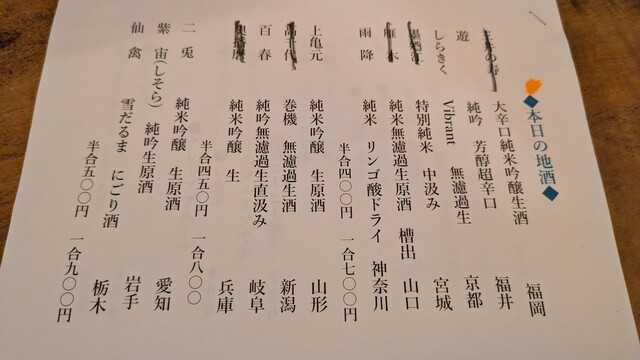 ◆本日の地酒◆
三井の寿 大辛口純米吟醸生酒 福岡
遊 純吟 芳醇超辛口 福井
しらきく Vibrant 無濾過生 京都
特別純米 中汲み 宮城
雁木 純米無濾過生原酒 槽出 山口
雨降 純米 リンゴ酸ドライ 神奈川
半合四〇〇円 一合七〇〇円
上亀元 純米吟醸 生原酒 山形
高千代 巻機 無濾過生酒 新潟
百春 純吟無濾過生直汲み 岐阜
奥播磨 純米吟醸 生 兵庫
半合四五〇円 一合八〇〇
二兎 純米吟醸 生原酒 愛知
紫宙(しそら) 純吟生原酒 岩手
仙禽 雪だるま にごり酒 栃木
半合五〇〇円 一合九〇〇円